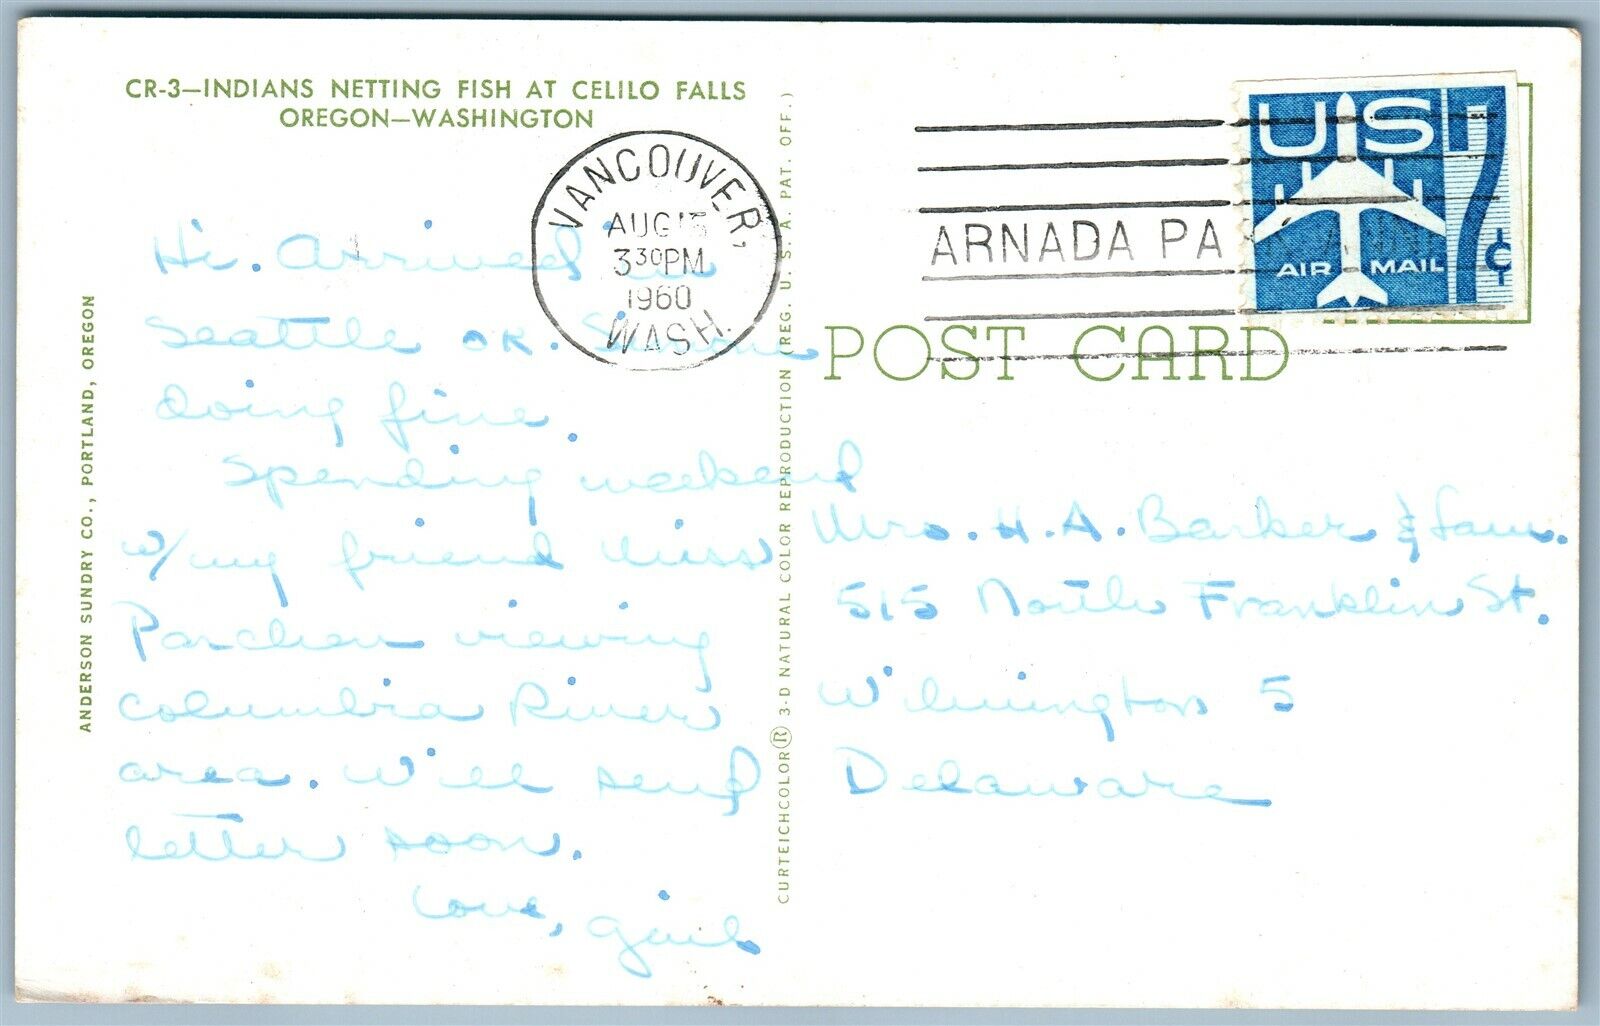 CR-3—INDIANS NETTING FISH AT CELILO FALLS
OREGON—WASHINGTON
VANCOUVER,
AUG
3 30 PM
1960
WASH.
ARNADA PA
US
7¢
AIR MAIL
POST CARD
Hi. Arrived in
Seattle OK.
doing fine.
Spending weekend
w/my friend Miss
viewing
Columbia River
area. Will send
letter soon.
Love, Gail
Mrs. H. A. Barker & Fam.
515 North Franklin St.
Wilmington 5
Delaware
ANDERSON SUNDRY CO., PORTLAND, OREGON
CURTEICHCOLOR® 3-D NATURAL COLOR REPRODUCTION (REG. U. S. A. PAT. OFF.)